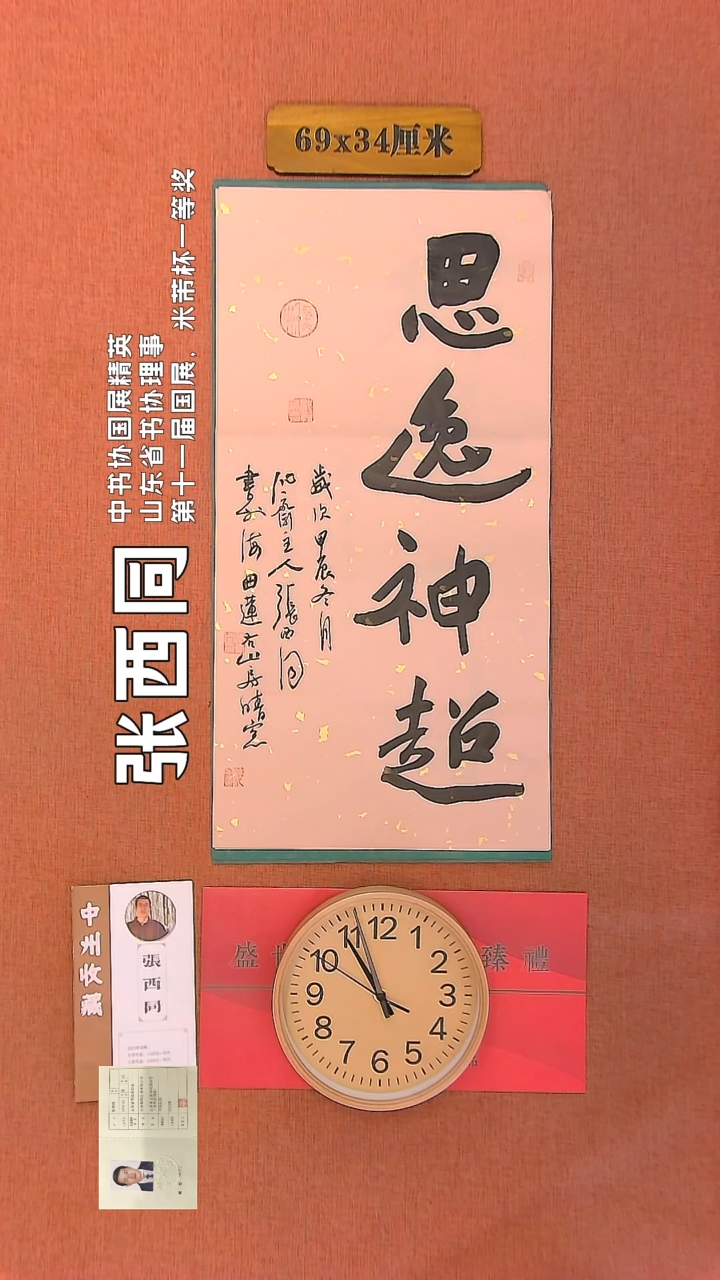 69x34厘米
思逸神超
歲次甲辰冬月
斋主人張西同
書於海曲蓮石山房晴窓
中书协国展精英
山东省书协理事
第十一届国展，米芾杯一等奖
张西同
張西同
盛世
臻禮
12
1
2
3
4
5
6
7
8
9
10
11